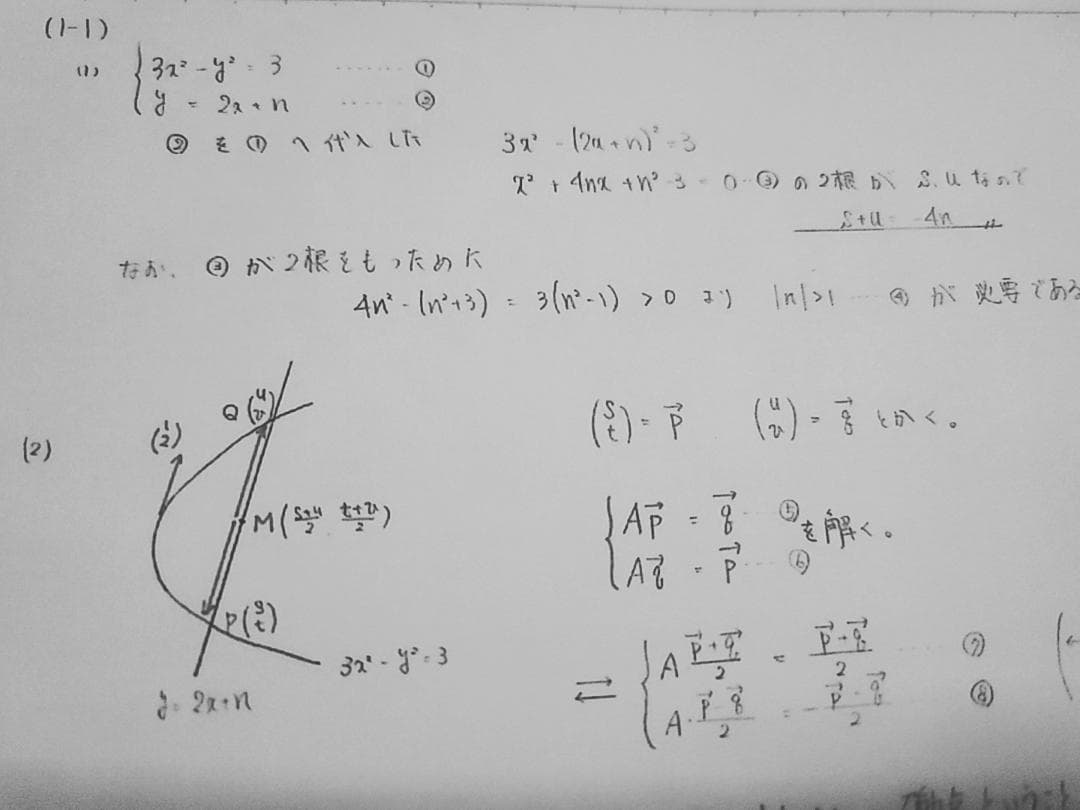 (1-1)
(1) { 3x² - y² = 3 ……… ①
y = 2x + n ……… ②
②を①へ代入した 3x² - (2x+n)² = 3
x² + 4nx + n² 3 = 0 … ③ の2根が s, u なので
s+u = -4n 〃
なお、③が2根をもっために
4n² - (n²+3) = 3(n²-1) > 0 より |n|>1 … ④ が 必要である
(2)
Q (u v)
(1 2)
M ( s+u/2 t+v/2 )
P (s t)
3x² - y² = 3
y = 2x+n
(s t) = p⃗ (u v) = q⃗ とかく。
{ Ap⃗ = q⃗ … ⑤ を解く。
Aq⃗ = p⃗ … ⑥
⇄ { A (p⃗+q⃗)/2 = (p⃗+q⃗)/2 …… ⑦
A・(p⃗-q⃗)/2 = -(p⃗-q⃗)/2 ⑧